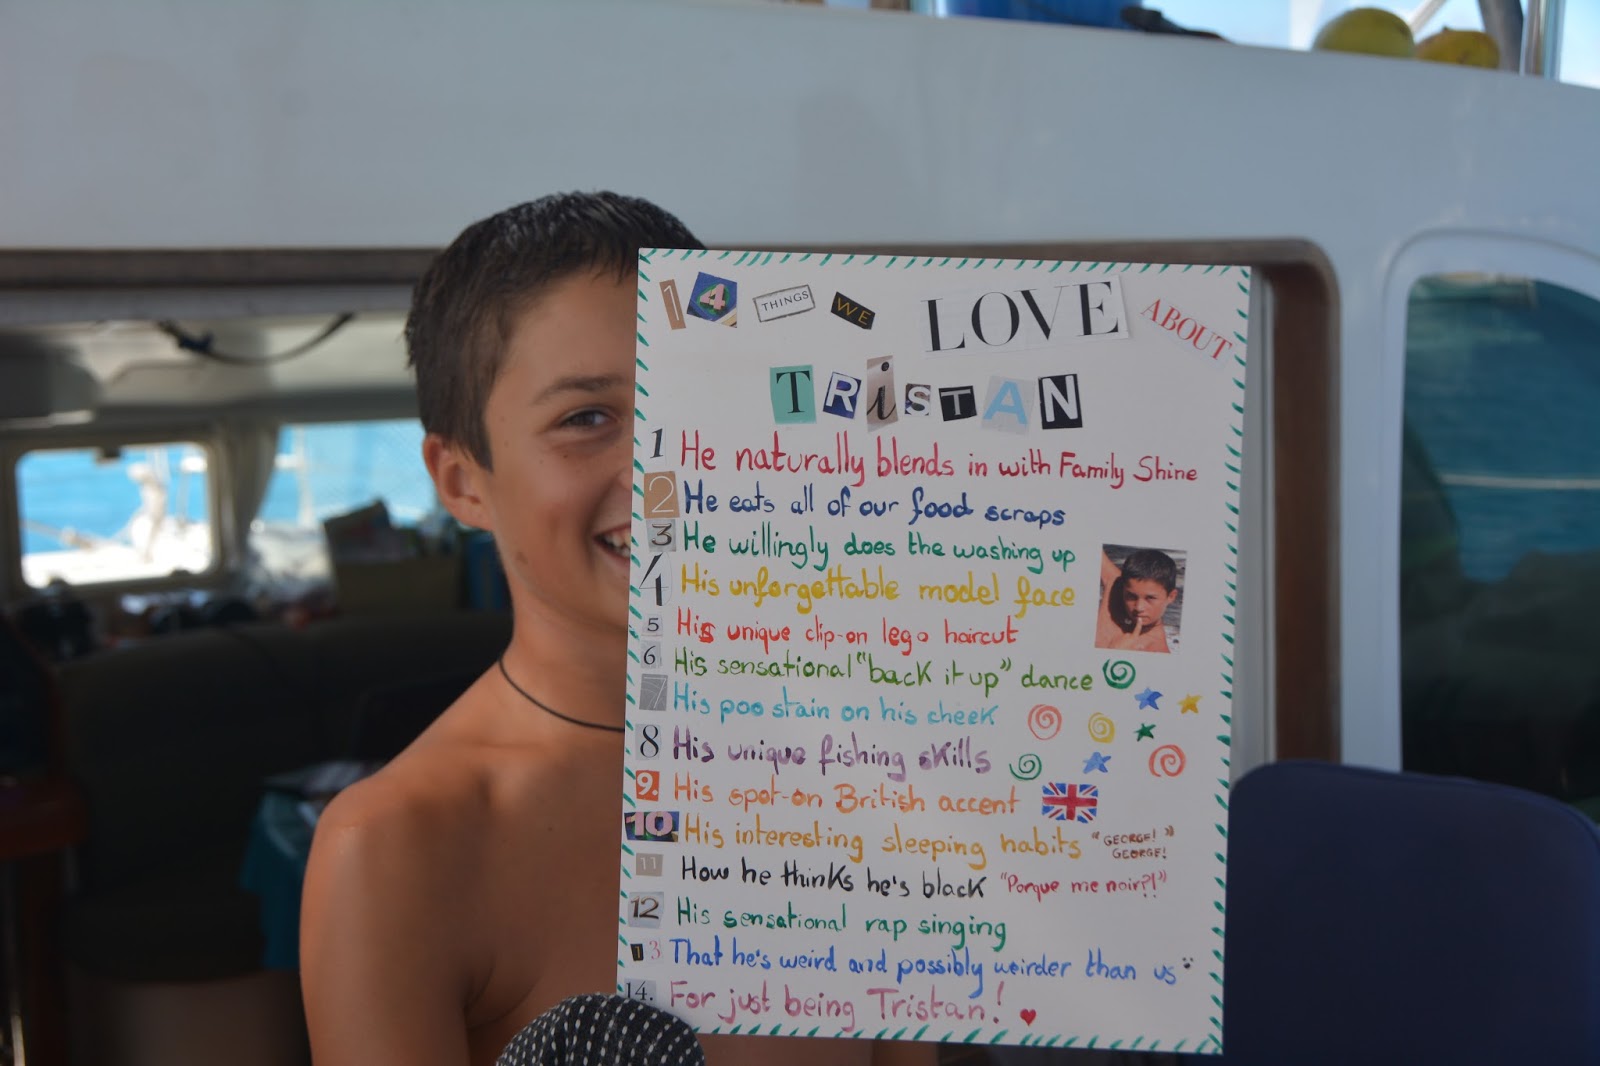 14 THINGS WE LOVE ABOUT
TRiSTAN
1 He naturally blends in with Family Shine
2 He eats all of our food scraps
3 He willingly does the washing up
4 His unforgettable model face
5 His unique clip-on lego haircut
6 His sensational "back it up" dance
7 His poo stain on his cheek
8 His unique fishing skills
9. His spot-on British accent
10 His interesting sleeping habits "GEORGE!
GEORGE!"
11 How he thinks he's black "Porque me noir?!"
12 His sensational rap singing
13 That he's weird and possibly weirder than us
14. For just being Tristan!